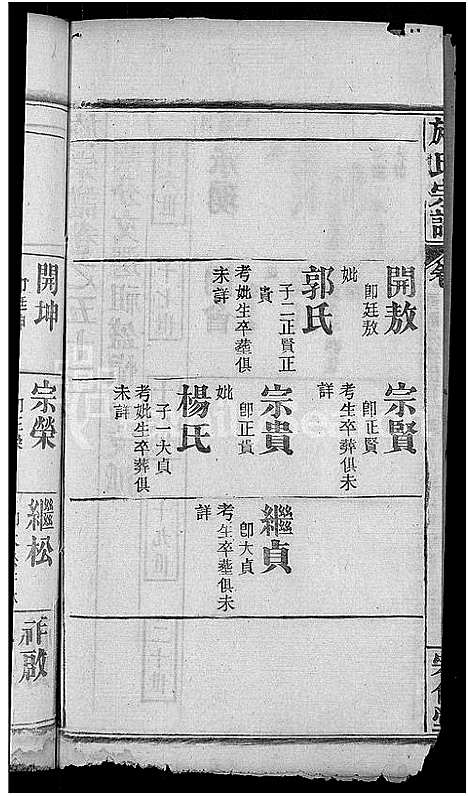 施氏宗譜
開敖
即廷敖
妣
郭氏
子二正賢正
貴
考妣生卒塟俱
未詳
宗賢
即正賢
考生卒葬俱未
詳
宗貴
即正貴
妣
楊氏
子一大貞
考妣生卒葬俱
未詳
繼貞
即大貞
考生卒塟俱未
詳
開坤
宗榮
繼松
祥啟